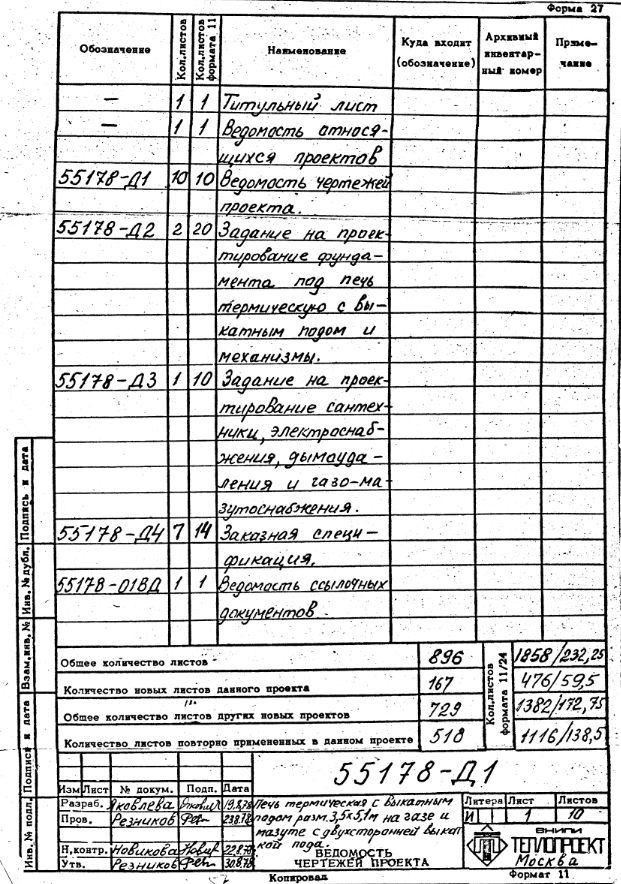 Форма 27
Обозначение Кол.листов Кол.листов формата 11 Наименование Куда входит (обозначение) Архивный инвентарный номер Примечание
— 1 1 Титульный лист
— 1 1 Ведомость относя-
щихся проектов
55178-Д1 10 10 Ведомость чертежей
проекта.
55178-Д2 2 20 Задание на проек-
тирование фунда-
мента под печь
термическую с вы-
катным подом и
механизмы.
55178-Д3 1 10 Задание на проек-
тирование сантех-
ники, электроснаб-
жения, дымоуда-
ления и газо-ма-
зутоснабжения.
55178-Д4 7 14 Заказная специ-
фикация.
55178-01ВД 1 1 Ведомость ссылочных
документов.
Общее количество листов 896 Кол.листов формата 11/24 1858/232,25
Количество новых листов данного проекта 167 476/59,5
Общее количество листов других новых проектов 729 1382/172,75
Количество листов повторно примененных в данном проекте 518 1116/138,5
55178-Д1
Изм Лист № докум. Подп. Дата
Разраб. Яковлева
Пров. Резников
Н.контр. Новикова
Утв. Резников
Печь термическая с выкатным
подом разм. 3,5х5,1м на газе и
мазуте с двухсторонней выкат
кой пода.
ВЕДОМОСТЬ
ЧЕРТЕЖЕЙ ПРОЕКТА
Литера Лист Листов
И 1 10
ВНИПИ
ТЕПЛОПРОЕКТ
Москва
Копировал
Формат 11
Инв. № подл. Подпись и дата Взам.инв. № Инв. № дубл. Подпись и дата